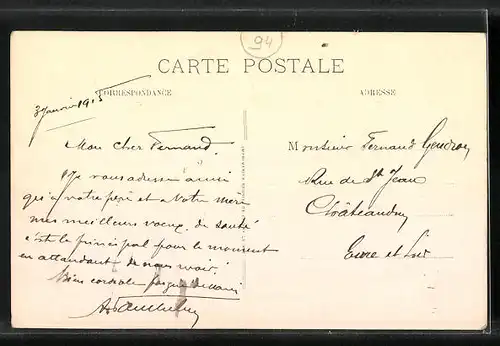 94
CARTE POSTALE
CORRESPONDANCE
ADRESSE
3 Janvier 1915
Mon cher Fernand.
Je vous adresse ainsi
qu'à votre père et à votre mère
mes meilleurs voeux de santé
c'est le principal pour le moment
en attendant de nous voir.
Bien cordiale poignée de main
Monsieur Fernand Gendron
Rue de St Jean
Châteaudun
Eure et Loir